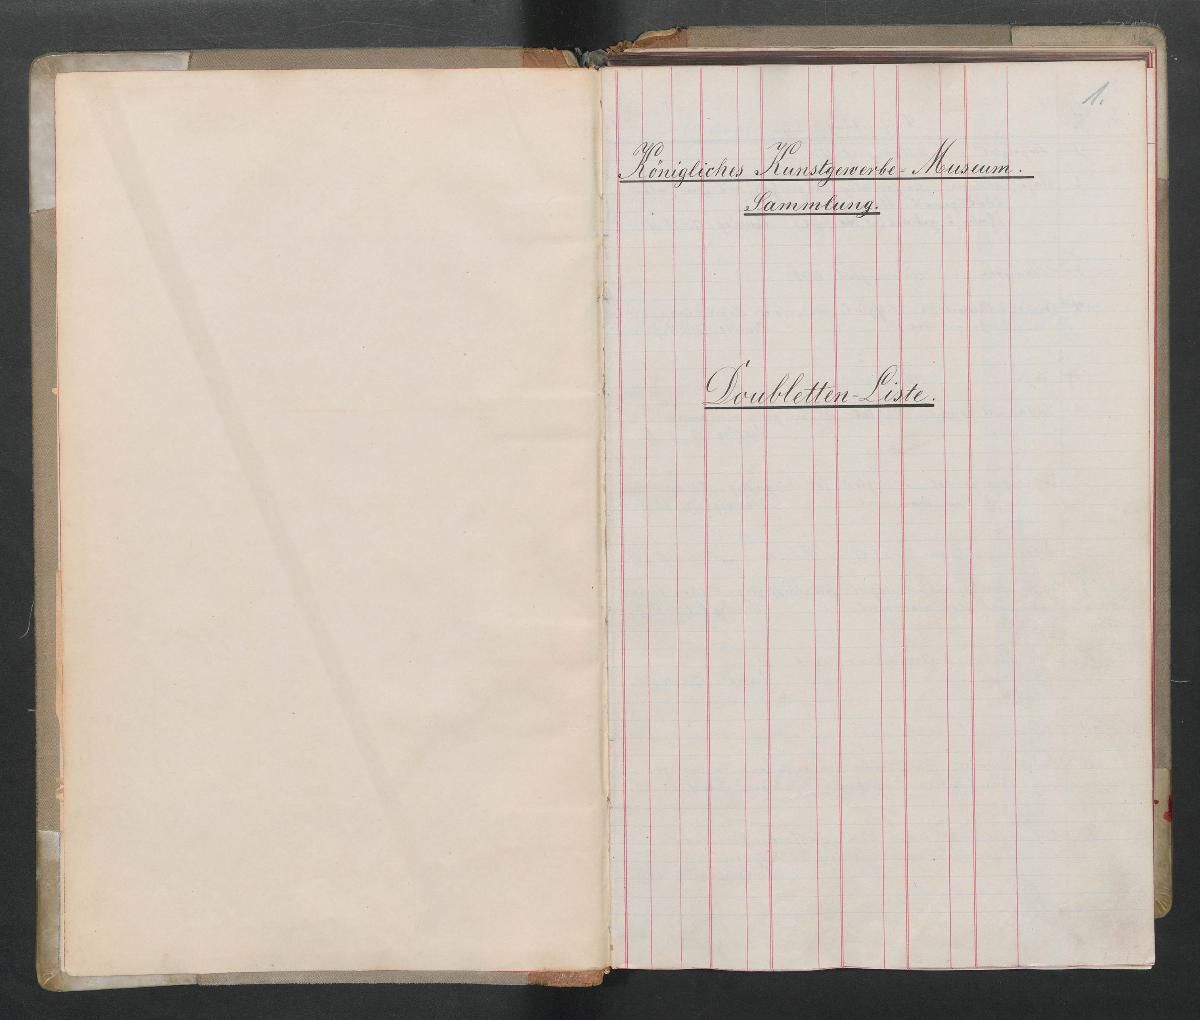 1.
Königliches Kunstgewerbe-Museum.
Sammlung.
Doubletten-Liste.